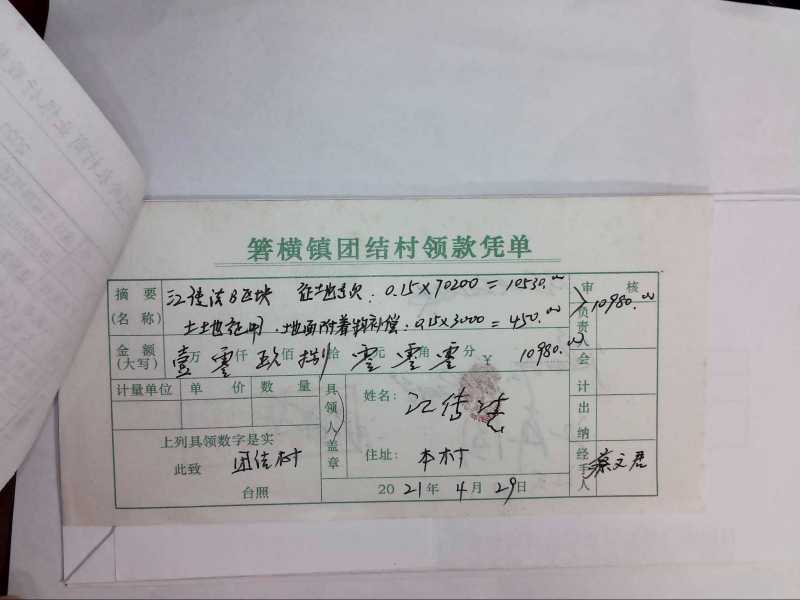 箬横镇团结村领款凭单
摘要(名称) 江 法8区块 征地款: 0.15×70200=10530.00
土地 明.地面附着物补偿:0.15×3000=450.00
10980.00
审核
负责人
金额(大写) 壹万零仟玖佰捌拾零元零角零分 ¥ 10980.00
会计
计量单位 单价 数量
具领人盖章
姓名: 江传法
出纳
上列具领数字是实
此致 团结村
台照
住址: 本村
经手人 蔡文君
2021年4月29日